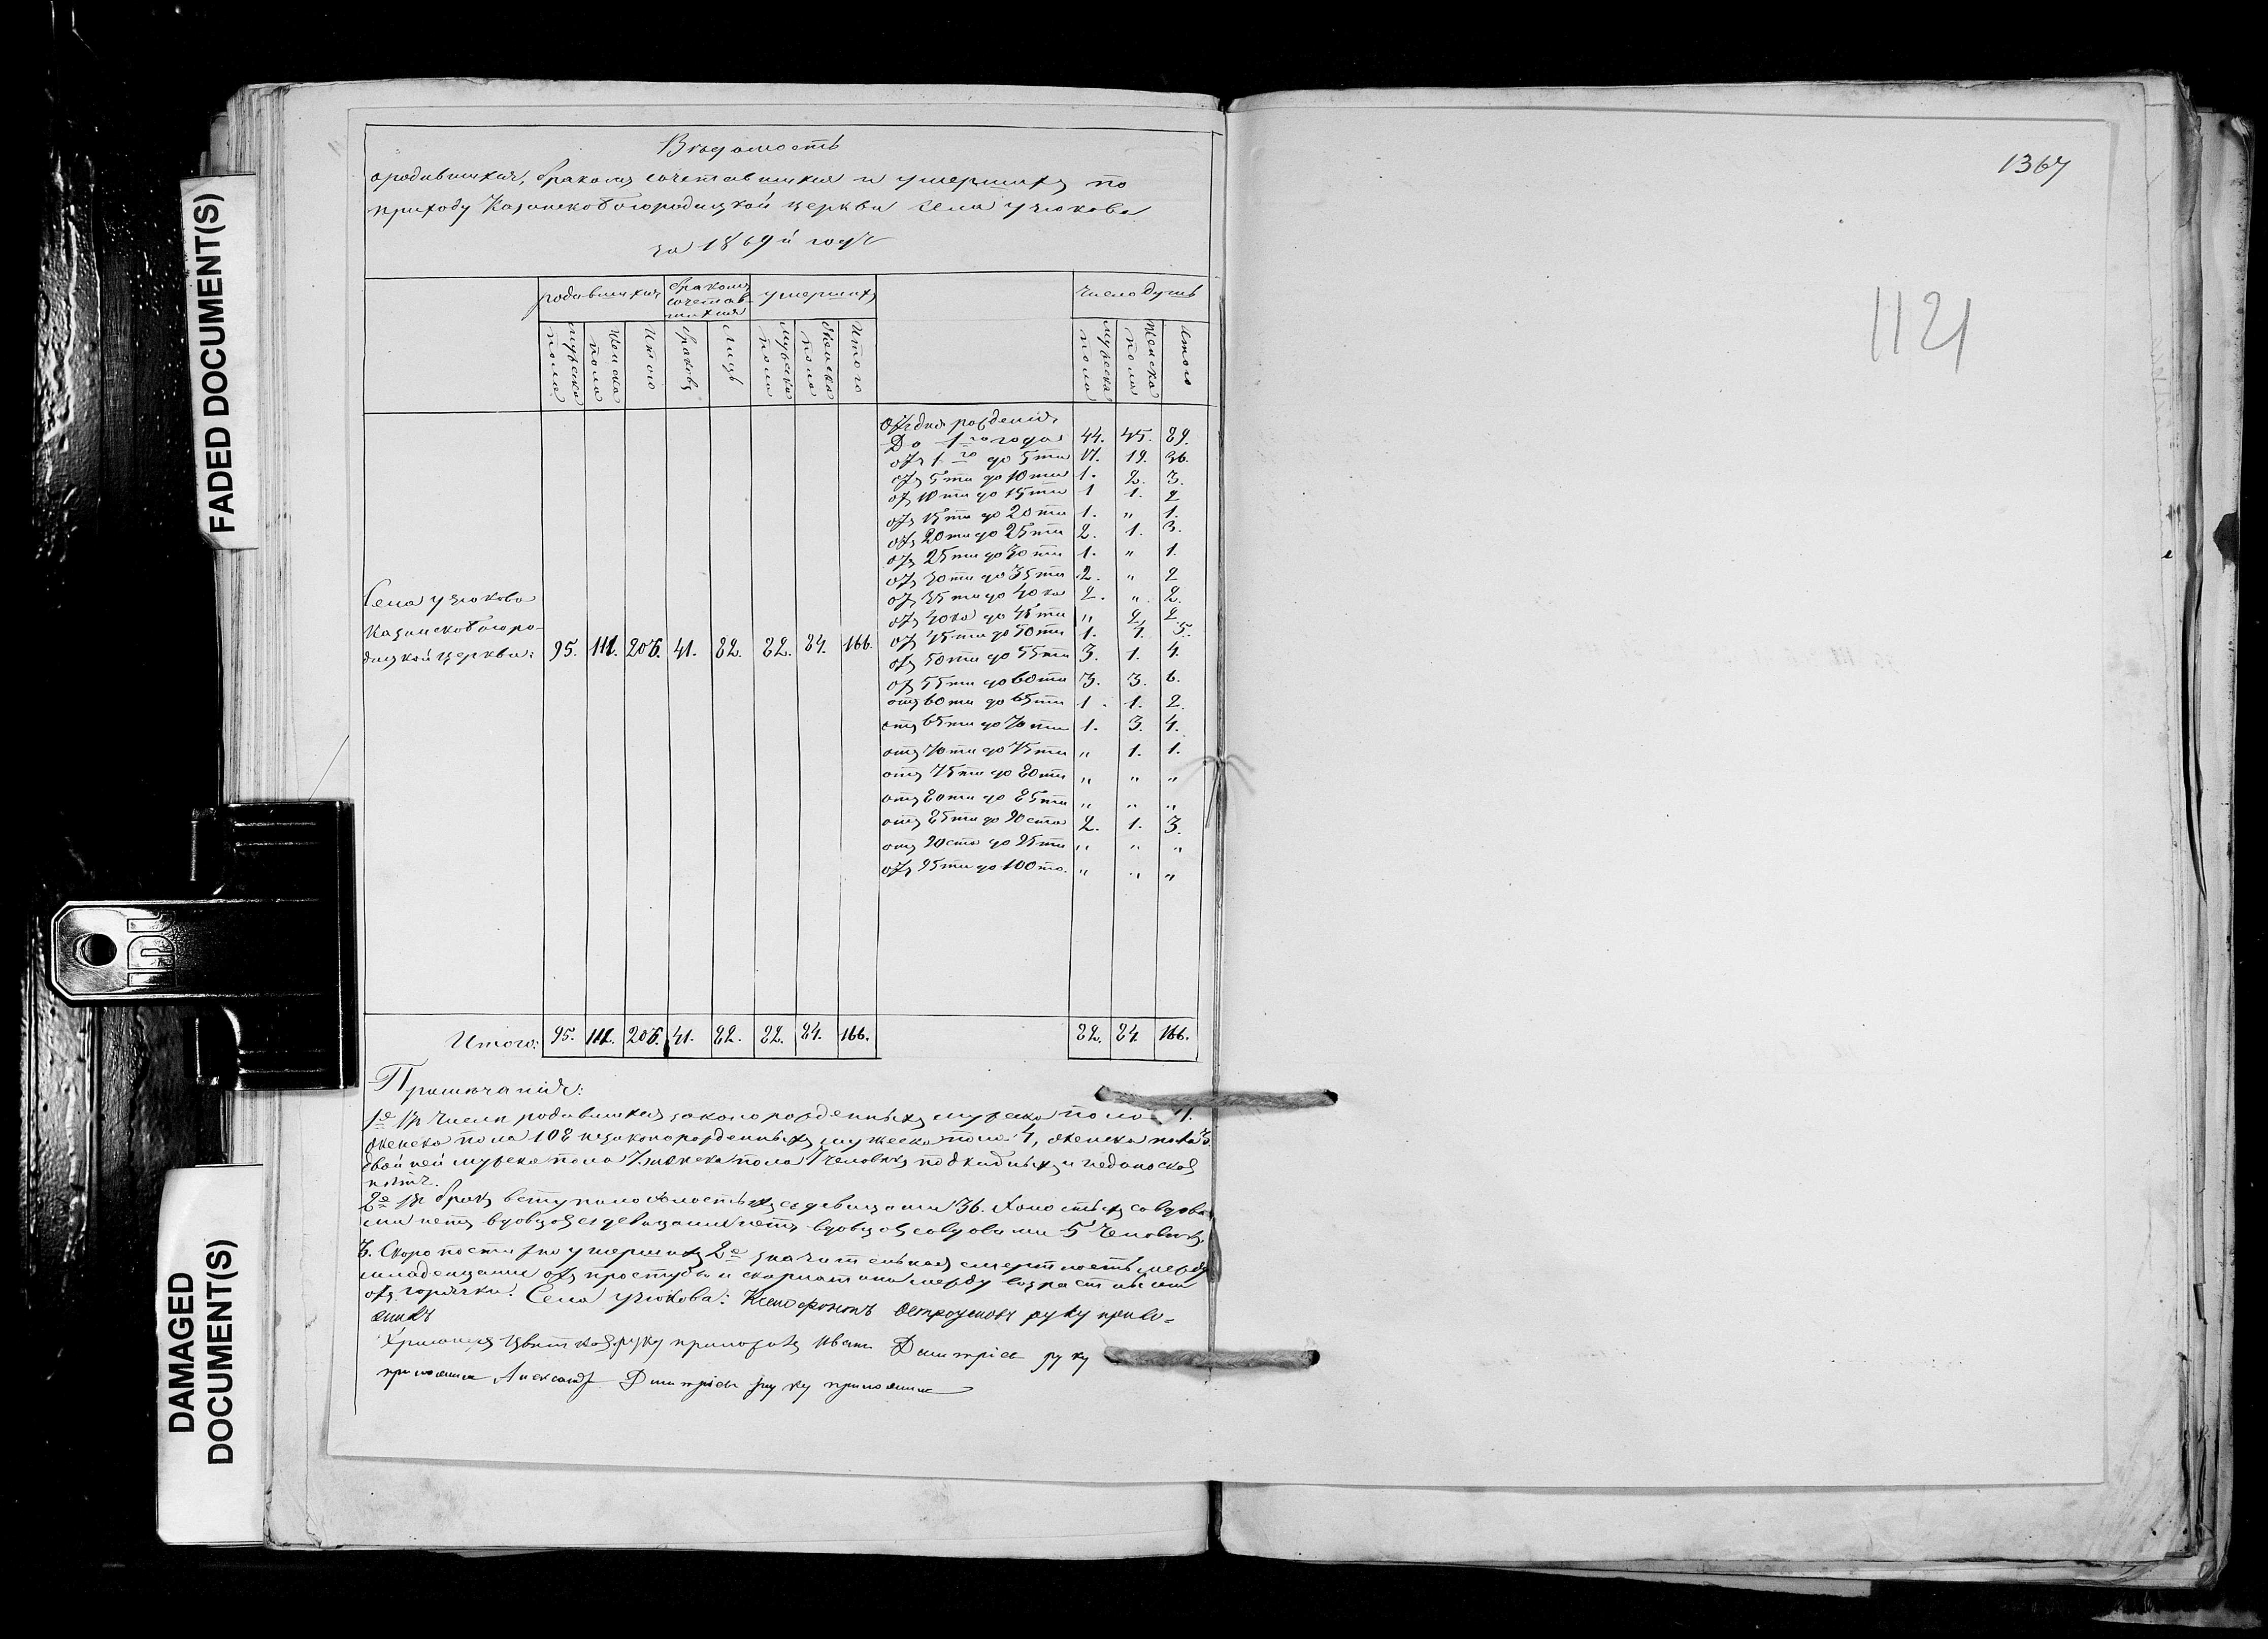 FADED DOCUMENT(S)
DAMAGED
DOCUMENT(S)
Вѣдомость
о родившихся, бракомъ сочетавшихся и умершихъ по
приходу Казанскобогородицкой церкви села Узюкова
за 1869й годъ
родившихся бракомъ сочетавшихся умершихъ число душъ
мужска пола женска пола Итого браковъ лицъ мужска пола женска пола Итого мужска пола женска пола Итого
Отъ дня рожденія
До 1го года 44. 45. 89.
отъ 1го до 5ти 17. 19. 36.
отъ 5ти до 10ти 1. 2. 3.
отъ 10ти до 15ти 1 1. 2
отъ 15ти до 20ти 1. " 1.
отъ 20ти до 25ти 2. 1. 3.
отъ 25ти до 30ти 1. " 1.
отъ 30ти до 35ти 2. " 2
отъ 35ти до 40ка 2. " 2.
отъ 40ка до 45ти " 2 2.
отъ 45ти до 50ти 1. 4. 5.
отъ 50ти до 55ти 3. 1. 4
отъ 55ти до 60ти 3. 3. 6.
отъ 60ти до 65ти 1. 1. 2.
отъ 65ти до 70ти 1. 3. 4.
отъ 70ти до 75ти " 1. 1.
отъ 75ти до 80ти " " "
отъ 80ти до 85ти " " "
отъ 85ти до 90ста 2. 1. 3.
отъ 90ста до 95ти " " "
отъ 95ти до 100то. " " "
Села Узюкова
Казанскобогоро-
дицкой церкви: 95. 111. 206. 41. 82. 82. 84. 166.
Итого: 95. 111. 206. 41. 82. 82. 84. 166. 82. 84. 166.
Примѣчанія:
1е Въ числѣ родившихся законорожденныхъ мужска пола
женска пола 108 незаконорожденныхъ мужеска пола 4, женска пола 3.
двойней мужска пола 7. женска пола 7 человѣкъ подкидныхъ и недоносковъ
нѣтъ.
2е Въ бракъ вступило холостыхъ съ дѣвицами 36. холостыхъ со вдова
ми нетъ вдовцовъ съ дѣвицами нетъ вдовцовъ со вдовами 5 человѣкъ.
3. Скоропостижно умершихъ 2е значительная смертность между
младенцами отъ простуды и скарлатины между возрастными
отъ горячки. Села Узюкова: Ксенофонтъ Остроумовъ руку прило-
жилъ
Цвѣтковъ руку приложилъ Иванъ Димитріевъ руку
приложилъ Александръ Димитріевъ руку приложилъ
1367
1121